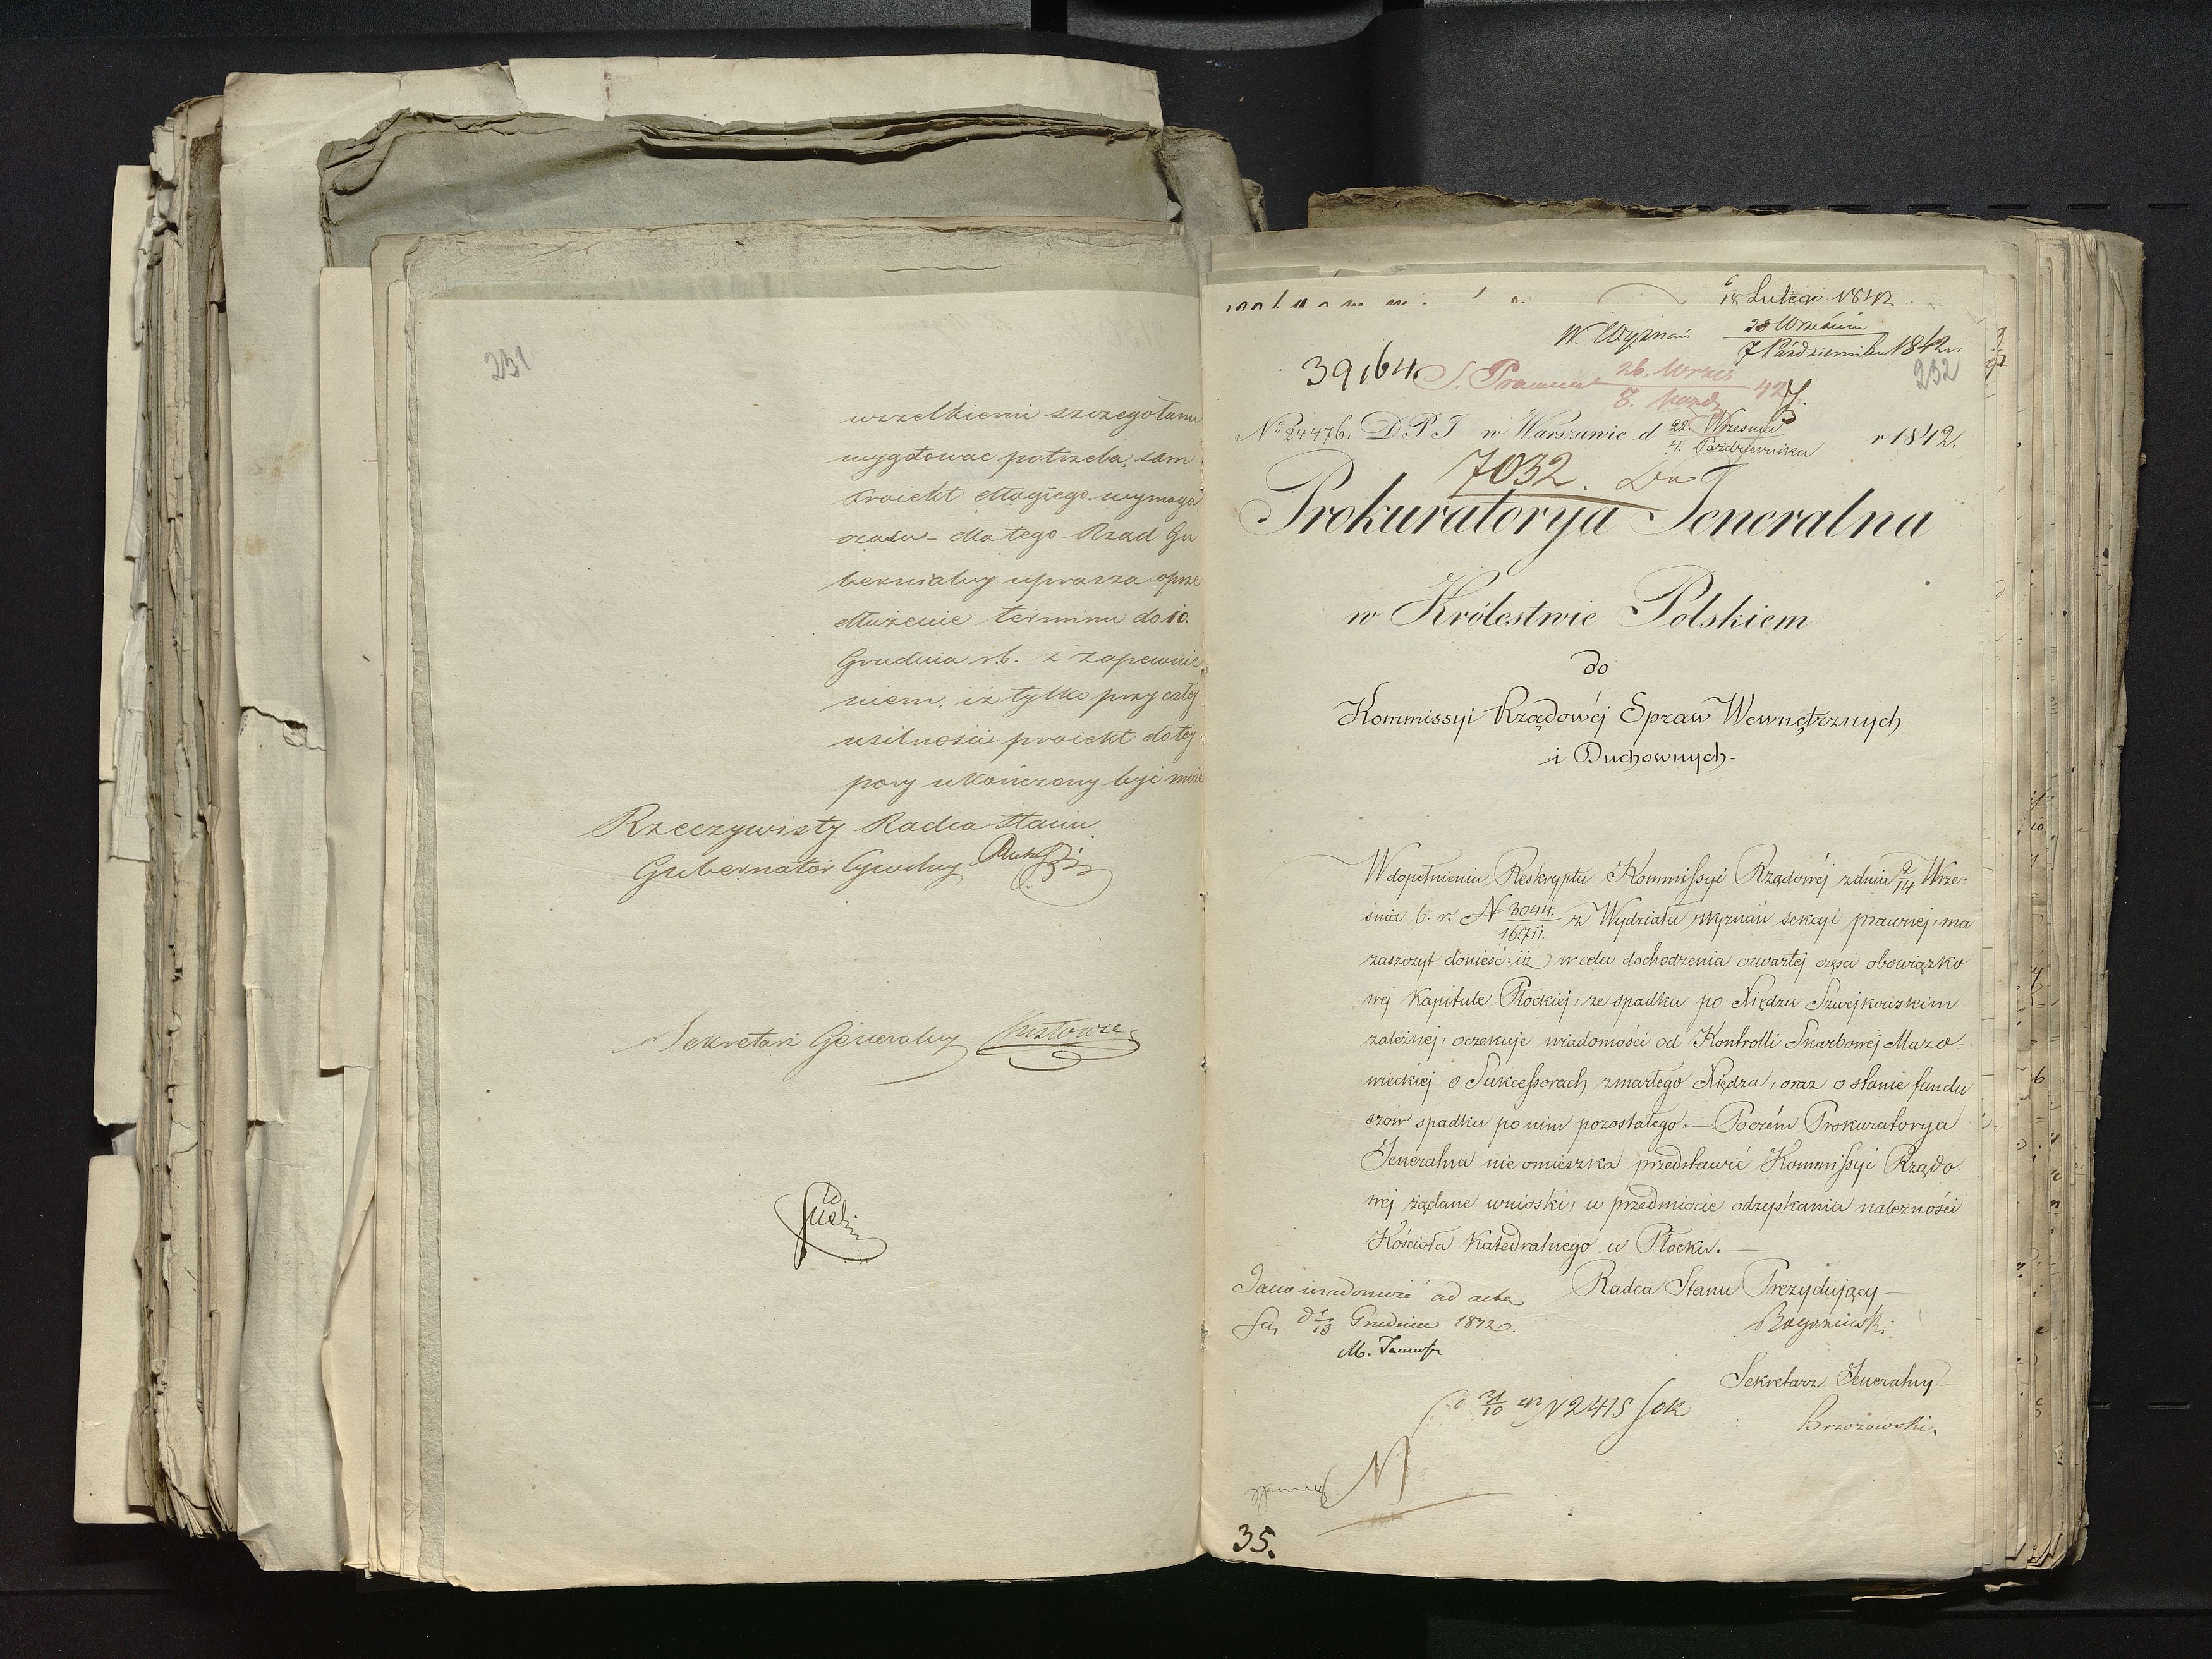 231
wszelkiemi szczegołami
wygotowac potrzeba, sam
proiekt długiego wymaga
czasu - dla tego Rząd Gu
bernialny uprasza o prze
dłużenie terminu do 10.
Grudnia r.b. z zapewnie
niem, iz tylko przy całej
usilnosci proiekt do tej
pory ukończony być może
Rzeczywisty Radca Stanu
Gubernator Cywilny
Sekretarz Generalny
6/18 Lutego 1842
W. Wyznań 28 Września / 7 Października 1842
39164. S. Prawna 26. Wrześ / 8. Paźd 42
232
No 24476. D P J w Warszawie d 22. Września / 4. Października r 1842.
7032.
Prokuratorya Jeneralna
w Królestwie Polskiem
do
Kommissyi Rządowéj Spraw Wewnętrznych
i Duchownych.
W dopełnieniu Reskryptu Kommissyi Rządowéj z dnia 2/14 Wrze-
śnia b. r. N 3044./16711. z Wydziału Wyznań sekcyi prawnej, ma
zaszczyt donieść: iż w celu dochodzenia czwartej części obowiązko
wej Kapitule Płockiéj, ze spadku po Xiędzu Szwejkowskim
zależnej, oczekuje wiadomości od Kontrolli Skarbowej Mazo-
wieckiej o Sukcessorach zmarłego Xiędza, oraz o stanie fundu
szów spadku po nim pozostałego. — Poczém Prokuratorya
Jeneralna nie omieszka przedstawić Kommissyi Rządo-
wej żądane wnioski, w przedmiocie odzyskania należności
Kościoła Katedralnego w Płocku. —
Radca Stanu Prezydujący
Jako wiadomość ad acta
d 1/13 Grudnia 1842.
Sekretarz Jeneralny
Brzozowski.
d 31/10 42 N 2415
35.